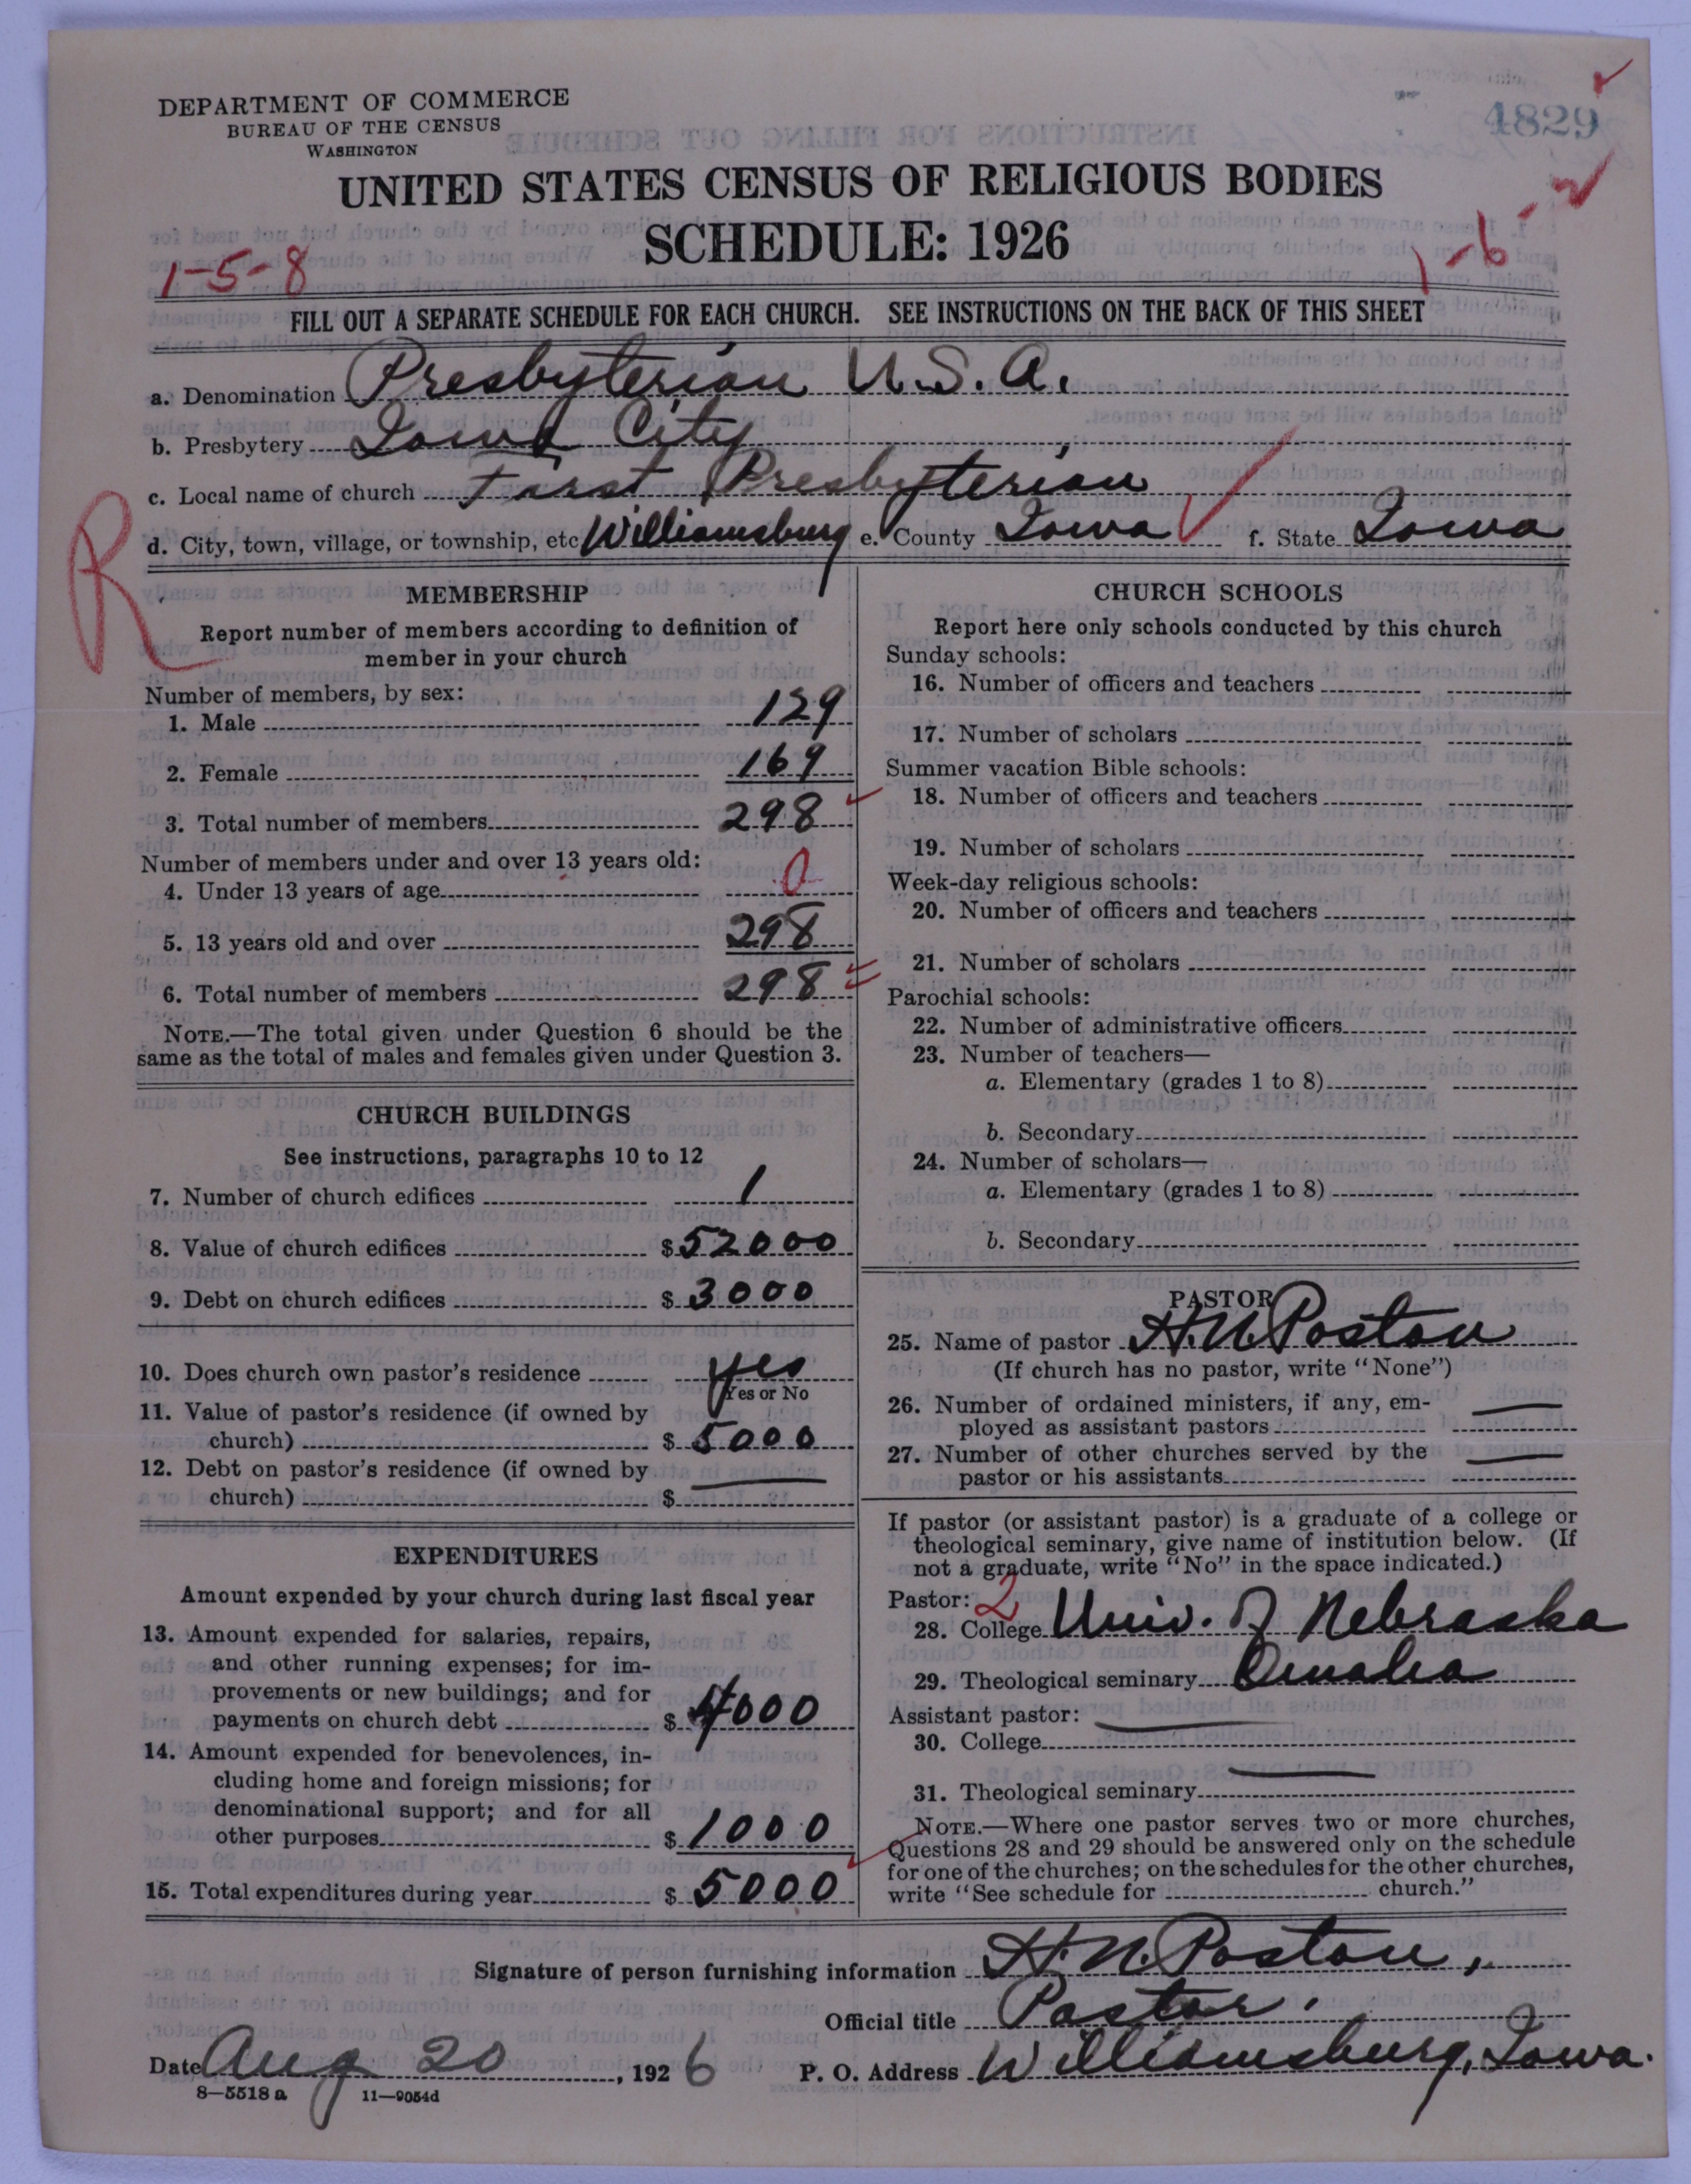 DEPARTMENT OF COMMERCE
BUREAU OF THE CENSUS
WASHINGTON
4829
UNITED STATES CENSUS OF RELIGIOUS BODIES
SCHEDULE: 1926
1-5-8
1-6-
FILL OUT A SEPARATE SCHEDULE FOR EACH CHURCH. SEE INSTRUCTIONS ON THE BACK OF THIS SHEET
a. Denomination Presbyterian U.S.A.
b. Presbytery Iowa City
c. Local name of church First Presbyterian
R
d. City, town, village, or township, etc Williamsburg e. County Iowa f. State Iowa
MEMBERSHIP
Report number of members according to definition of
member in your church
Number of members, by sex:
1. Male 129
2. Female 169
3. Total number of members 298
Number of members under and over 13 years old:
4. Under 13 years of age 0
5. 13 years old and over 298
6. Total number of members 298
NOTE.—The total given under Question 6 should be the
same as the total of males and females given under Question 3.
CHURCH BUILDINGS
See instructions, paragraphs 10 to 12
7. Number of church edifices 1
8. Value of church edifices $ 52000
9. Debt on church edifices $ 3000
10. Does church own pastor's residence yes
Yes or No
11. Value of pastor's residence (if owned by
church) $ 5000
12. Debt on pastor's residence (if owned by
church) $ —
EXPENDITURES
Amount expended by your church during last fiscal year
13. Amount expended for salaries, repairs,
and other running expenses; for im-
provements or new buildings; and for
payments on church debt $ 4000
14. Amount expended for benevolences, in-
cluding home and foreign missions; for
denominational support; and for all
other purposes $ 1000
15. Total expenditures during year $ 5000
CHURCH SCHOOLS
Report here only schools conducted by this church
Sunday schools:
16. Number of officers and teachers
17. Number of scholars
Summer vacation Bible schools:
18. Number of officers and teachers
19. Number of scholars
Week-day religious schools:
20. Number of officers and teachers
21. Number of scholars
Parochial schools:
22. Number of administrative officers
23. Number of teachers—
a. Elementary (grades 1 to 8)
b. Secondary
24. Number of scholars—
a. Elementary (grades 1 to 8)
b. Secondary
PASTOR
25. Name of pastor H.N. Poston
(If church has no pastor, write "None")
26. Number of ordained ministers, if any, em-
ployed as assistant pastors —
27. Number of other churches served by the
pastor or his assistants —
If pastor (or assistant pastor) is a graduate of a college or
theological seminary, give name of institution below. (If
not a graduate, write "No" in the space indicated.)
Pastor: 2
28. College Univ. of Nebraska
29. Theological seminary Omaha
Assistant pastor:
30. College —
31. Theological seminary —
NOTE.—Where one pastor serves two or more churches,
Questions 28 and 29 should be answered only on the schedule
for one of the churches; on the schedules for the other churches,
write "See schedule for church."
Signature of person furnishing information H.N. Poston,
Official title Pastor.
Date Aug 20, 1926 P. O. Address Williamsburg, Iowa.
8—5518 a 11—9054d